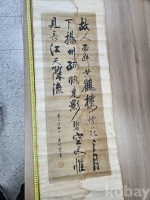 故人西辭黃鶴樓烟花三月
下揚州孤帆遠影碧空盡惟
見長江天際流
kobay